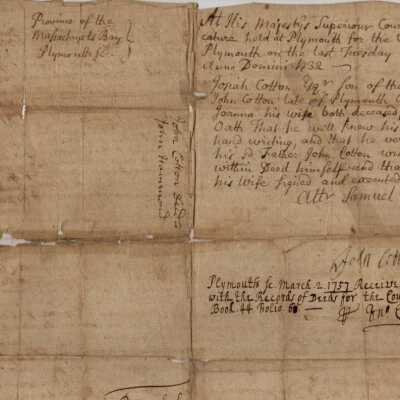 Province of the
Massachusets Bay
Plymouth sc.
At His Majestys Superiour Cour
cature held at Plymouth for the C
Plymouth on the last Tuesday
Anno Domini 1732
Josiah Cotton Esqr son of the
John Cotton late of Plymouth
Joanna his wife both deceased
Oath That he well knew his
hand writing, and that he ver
his sd Father John Cotton wro
within Deed himself and tha
his Wife signed and executed
Attr Samuel
John Cotton
John Cott
Plymouth sc March 2 1757 Receive
with the Records of Deeds for the Cou
Book 44 Folio 66